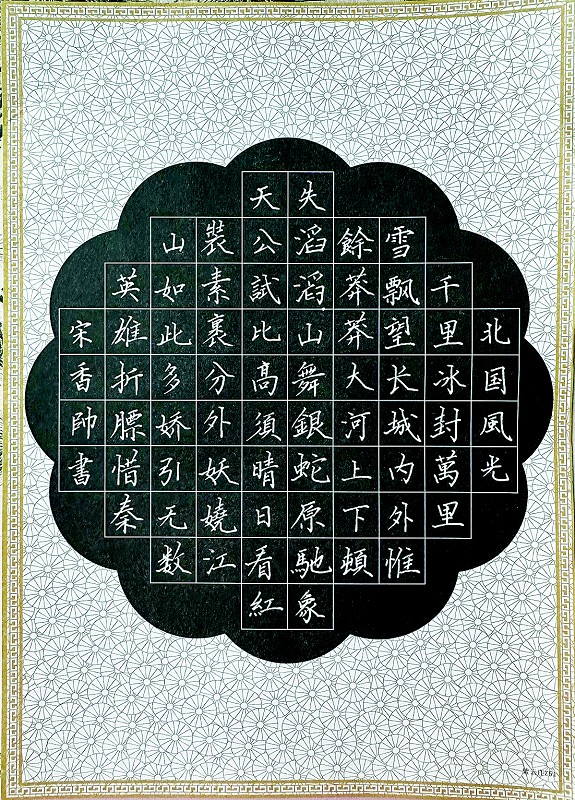 北国風光
千里冰封萬里
雪飘望长城内外惟
餘莽莽大河上下頓
失滔滔山舞銀蛇原馳象
天公試比高須晴日看紅
裝素裹分外妖嬈江
山如此多娇引无数
英雄折膘惜秦
宋香帥書